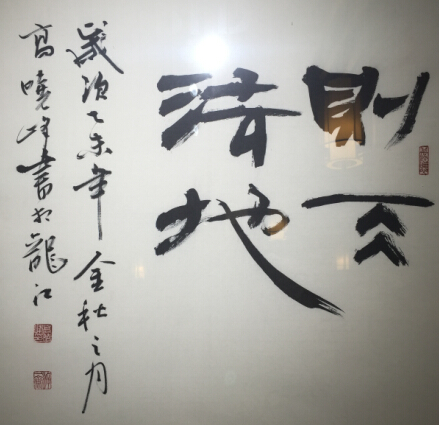 則天
法地
歲次乙未年金秋之月
高曉峰書於龍江